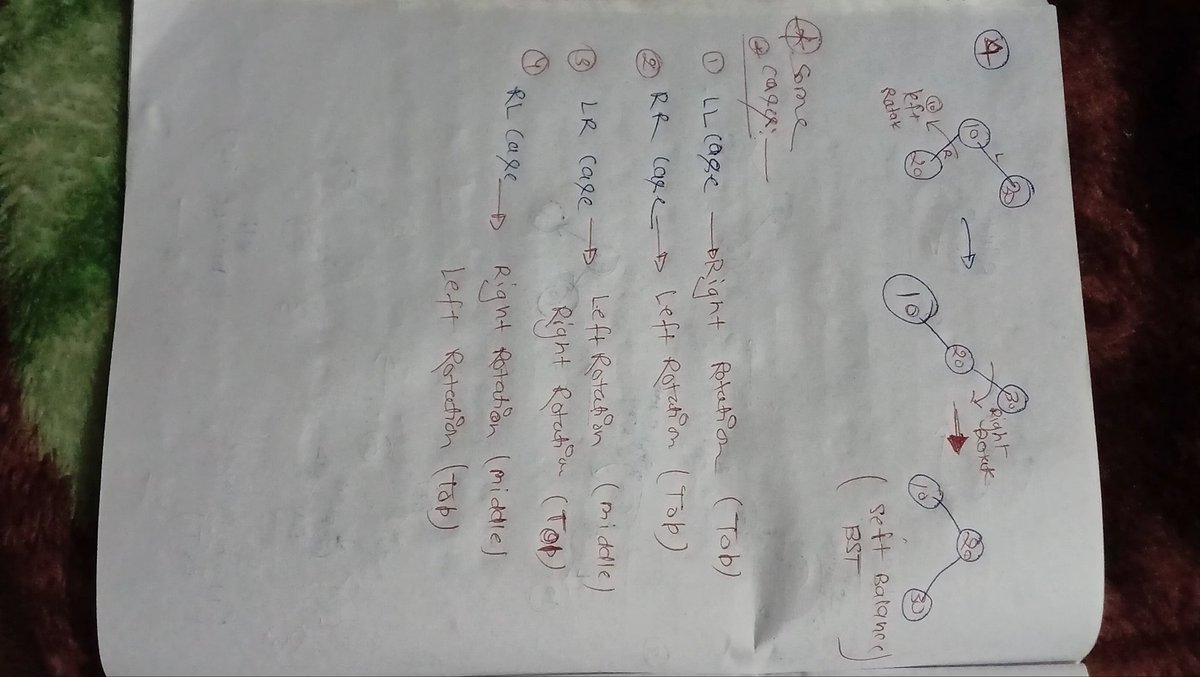 4
30
L
10
R
20
10
left
Rotat
30
20
10
Right
Rotat
20
10
30
(Seft Balance)
BST
* Some
* Cases:-
1 LL Case → Right Rotation (Top)
2 RR Case → Left Rotation (Top)
3 LR Case → Left Rotation (middle)
Right Rotation (Top)
4 RL Case → Right Rotation (middle)
Left Rotation (Top)